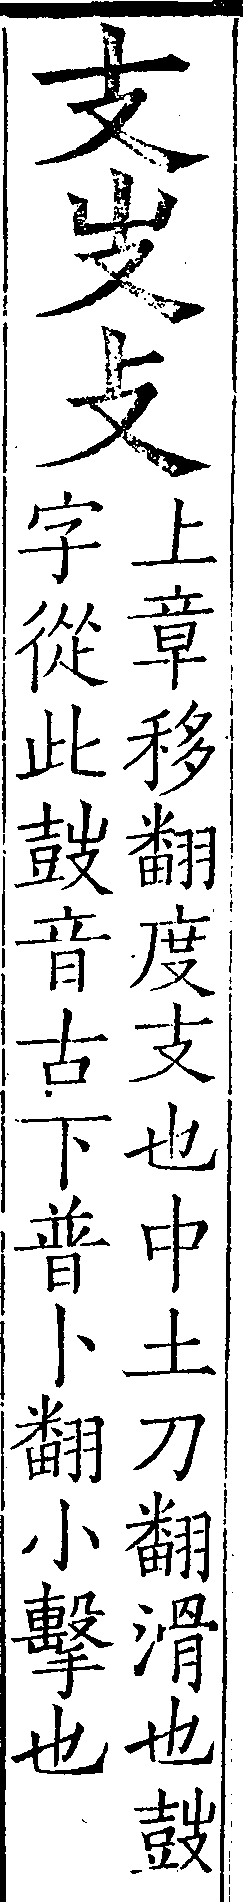 支𠬢攴
上章移翻度支也中土刀翻滑也鼓
字從此鼓音古下普卜翻小擊也